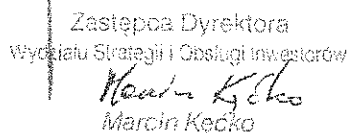 Zastępca Dyrektora
Wydziału Strategii i Obsługi Inwestorów
Marcin Kęćko
Marcin Kęćko